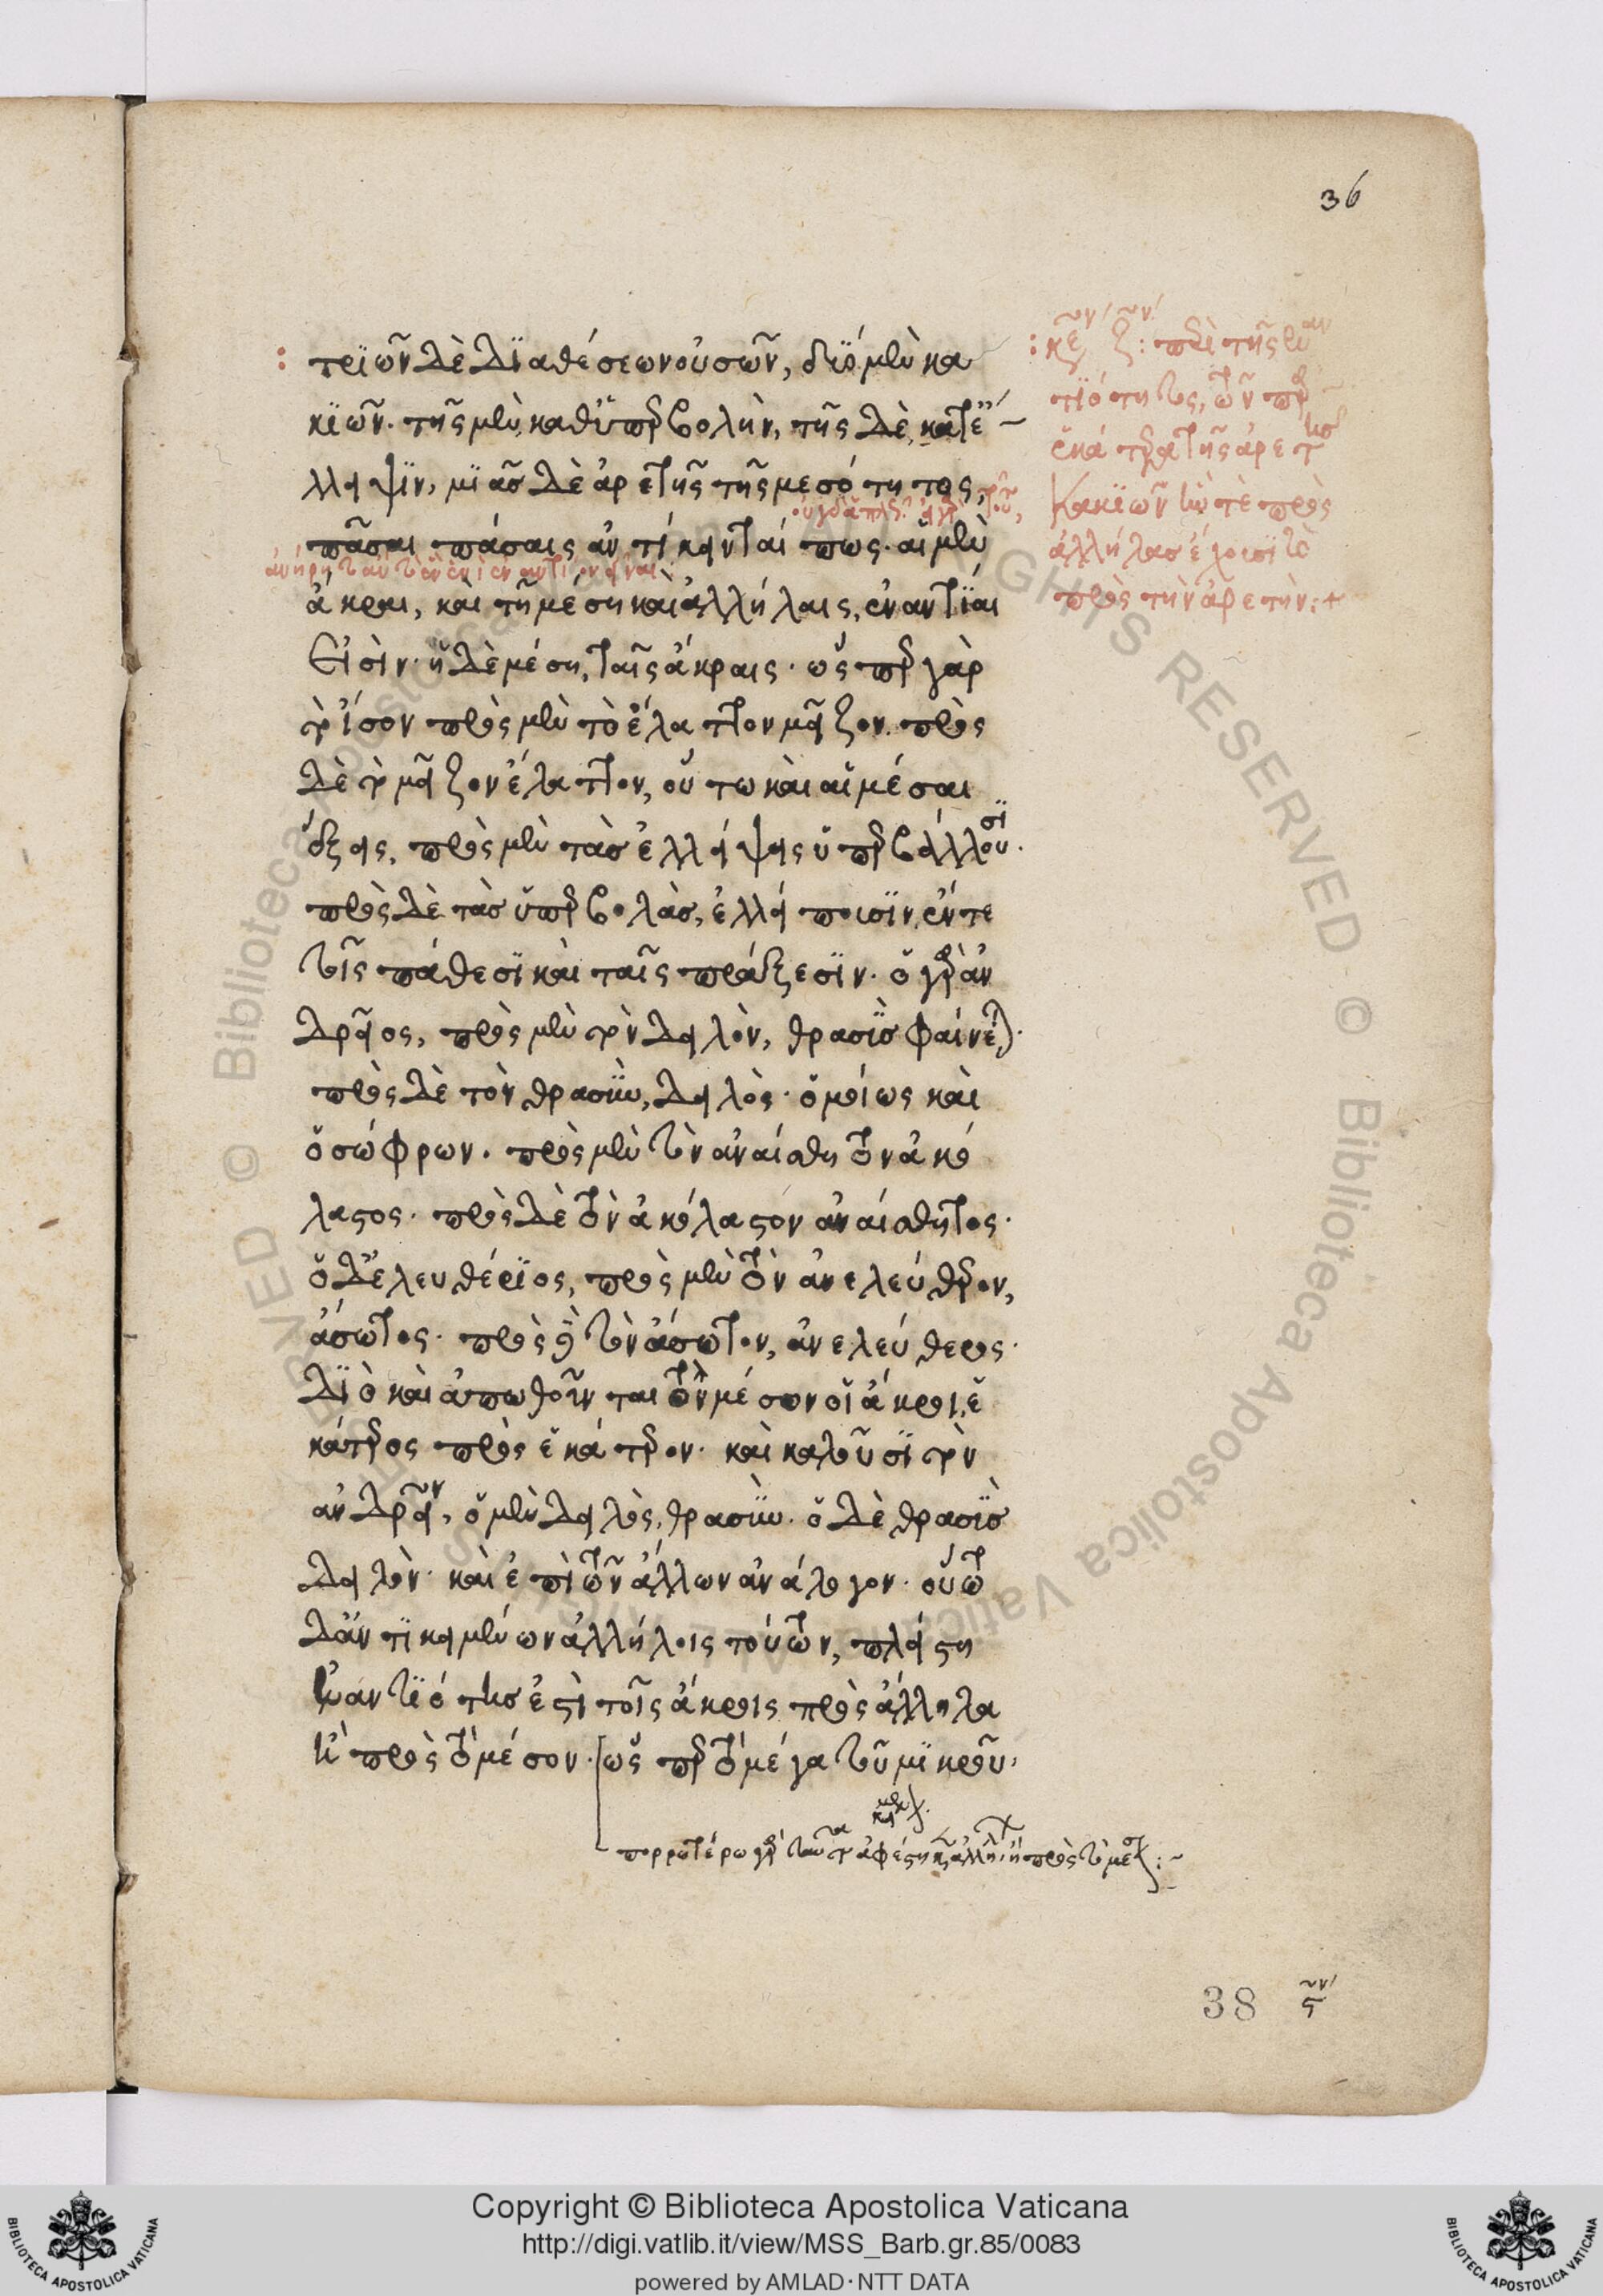 36
: τριῶν δὲ διαθέσεων οὐσῶν, δύο μὲν κα
κιῶν· τῆς μὲν καθ' ὑπερβολὴν, τῆς δὲ κατ' ἔ
λλειψιν, μιᾶς δὲ ἀρετῆς τῆς μεσότητος,
πᾶσαι πάσαις ἀντίκεινταί πως· αἱ μὲν
ἄκραι, καὶ τῇ μέσῃ καὶ ἀλλήλαις, ἐναντίαι
εἰσίν· ἡ δὲ μέση, ταῖς ἄκραις· ὥσπερ γὰρ
τὸ ἴσον πρὸς μὲν τὸ ἔλαττον μεῖζον· πρὸς
δὲ τὸ μεῖζον ἔλαττον, οὕτω καὶ αἱ μέσαι
ἕξεις, πρὸς μὲν τὰς ἐλλείψεις ὑπερβάλλουσι·
πρὸς δὲ τὰς ὑπερβολὰς, ἐλλείπουσιν, ἔν τε
τοῖς πάθεσι καὶ ταῖς πράξεσιν· ὁ γὰρ ἀν
δρεῖος, πρὸς μὲν τὸν δειλὸν, θρασὺς φαίνεται·
πρὸς δὲ τὸν θρασὺν, δειλὸς· ὁμοίως καὶ
ὁ σώφρων· πρὸς μὲν τὸν ἀναίσθητον ἀκό
λαστος· πρὸς δὲ τὸν ἀκόλαστον ἀναίσθητος·
ὁ δ' ἐλευθέριος, πρὸς μὲν τὸν ἀνελεύθερον,
ἄσωτος· πρὸς δὲ τὸν ἄσωτον, ἀνελεύθερος·
διὸ καὶ ἀπωθοῦνται τὸν μέσον οἱ ἄκροι, ἑ
κάτερος πρὸς ἑκάτερον· καὶ καλοῦσι τὸν
ἀνδρεῖον, ὁ μὲν δειλὸς, θρασὺν· ὁ δὲ θρασὺς
δειλὸν· καὶ ἐπὶ τῶν ἄλλων ἀνάλογον· οὕτω
δ' ἀντικειμένων ἀλλήλοις τούτων, πλείστη
ἐναντιότης ἐστὶ τοῖς ἄκροις πρὸς ἄλληλα
ἢ πρὸς τὸ μέσον· ὥσπερ τὸ μέγα τοῦ μικροῦ,
πορρωτέρω γὰρ ταῦτα ἀφέστηκεν ἀλλήλων ἢ πρὸς τὸ μέσον :~
: περὶ τῆς ἐναν
τιότητος, τῶν περ
ἑκάτερα τῆς ἀρετῆς
κακιῶν ἣν τὲ πρὸς
ἀλλήλας ἔχουσι καὶ
πρὸς τὴν ἀρετὴν :+
38
Copyright © Biblioteca Apostolica Vaticana
http://digi.vatlib.it/view/MSS_Barb.gr.85/0083
powered by AMLAD·NTT DATA
BIBLIOTECA APOSTOLICA VATICANA
BIBLIOTECA APOSTOLICA VATICANA